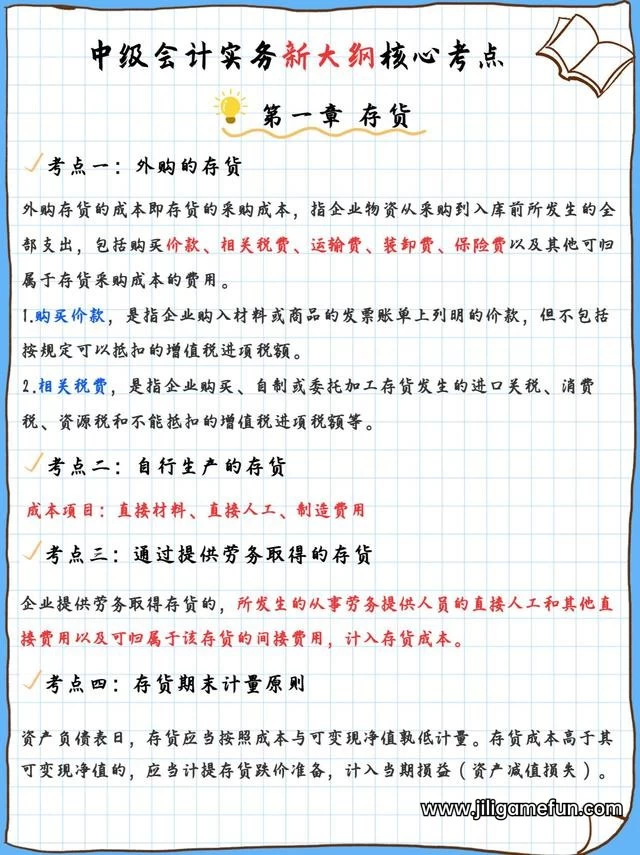 中级会计实务新大纲核心考点
第一章 存货
考点一：外购的存货
外购存货的成本即存货的采购成本，指企业物资从采购到入库前所发生的全
部支出，包括购买价款、相关税费、运输费、装卸费、保险费以及其他可归
属于存货采购成本的费用。
1.购买价款，是指企业购入材料或商品的发票账单上列明的价款，但不包括
按规定可以抵扣的增值税进项税额。
2.相关税费，是指企业购买、自制或委托加工存货发生的进口关税、消费
税、资源税和不能抵扣的增值税进项税额等。
考点二：自行生产的存货
成本项目：直接材料、直接人工、制造费用
考点三：通过提供劳务取得的存货
企业提供劳务取得存货的，所发生的从事劳务提供人员的直接人工和其他直
接费用以及可归属于该存货的间接费用，计入存货成本。
考点四：存货期末计量原则
资产负债表日，存货应当按照成本与可变现净值孰低计量。存货成本高于其
可变现净值的，应当计提存货跌价准备，计入当期损益（资产减值损失）。
www.jiligamefun.com